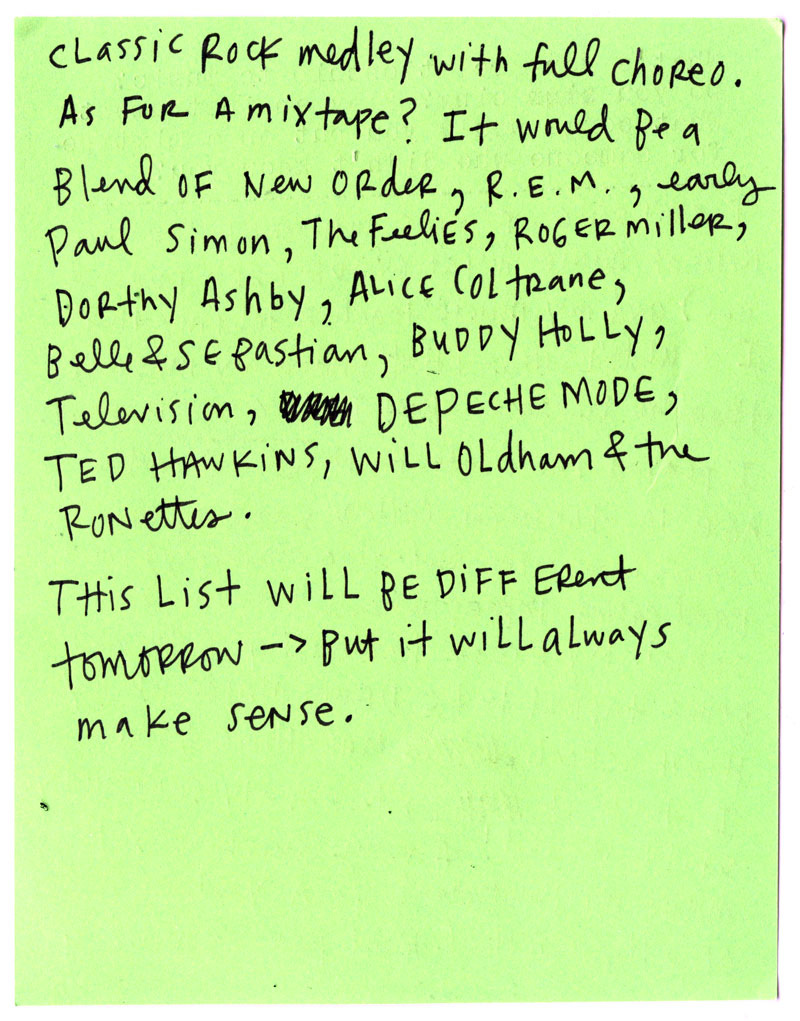 CLASSIC ROCK medley with full CHOREO.
As FOR A mixtape? It would Be a
Blend OF New ORdeR, R.E.M., early
Paul Simon, The FeeliES, ROGER MilleR,
DoRthy Ashby, ALICE Coltrane,
Belle & SEBastian, BUDDY HOLLY,
Television, DEPECHE MODE,
TED HAWKINS, WILL OLdham & the
RONettes.
THis List WiLL BE DIFFERent
tOMORROW -> But it will always
make SENSE.